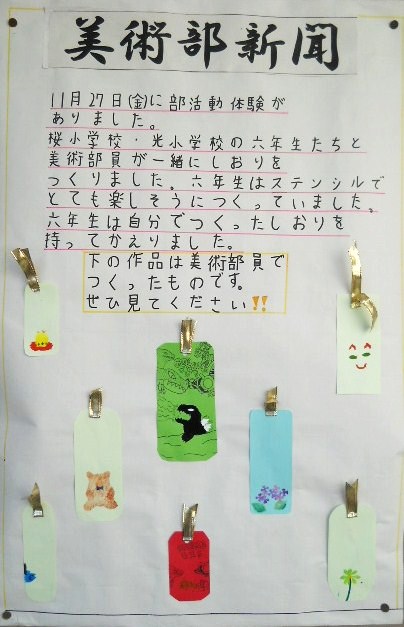 美術部新聞
11月27日(金)に部活動体験が
ありました。
桜小学校・光小学校の六年生たちと
美術部員が一緒にしおりを
つくりました。六年生はステンシルで
とても楽しそうにつくっていました。
六年生は自分でつくったしおりを
持ってかえりました。
下の作品は美術部員で
つくったものです。
ぜひ見てください!!